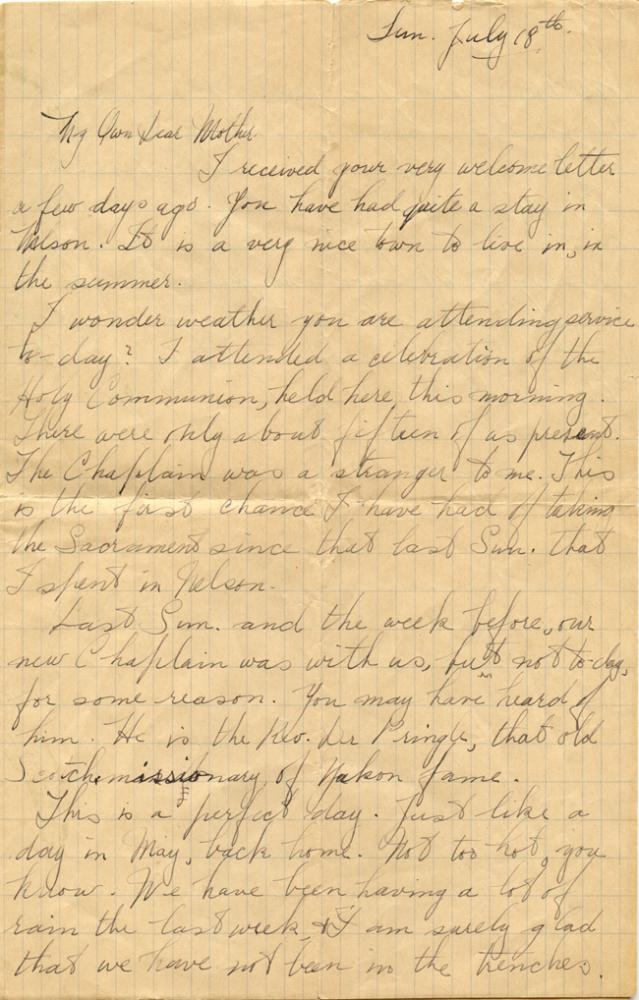 Sun. July 18th.
My Own Dear Mother
I received your very welcome letter
a few days ago. You have had quite a stay in
Nelson. It is a very nice town to live in, in
the summer.
I wonder weather you are attending service
to-day? I attended a celebration of the
Holy Communion, held here, this morning.
There were only about fifteen of us present.
The Chaplain was a stranger to me. This
is the first chance I have had of taking
the Sacrament since that last Sun. that
I spent in Nelson.
Last Sun. and the week before, our
new Chaplain was with us, but not to-day,
for some reason. You may have heard of
him. He is the Rev. Dr Pringle, that old
Scotch missionary, of Yukon fame.
This is a perfect day. Just like a
day in May, back home. Not too hot, you
know. We have been having a lot of
rain the last week & I am surely glad
that we have not been in the trenches.